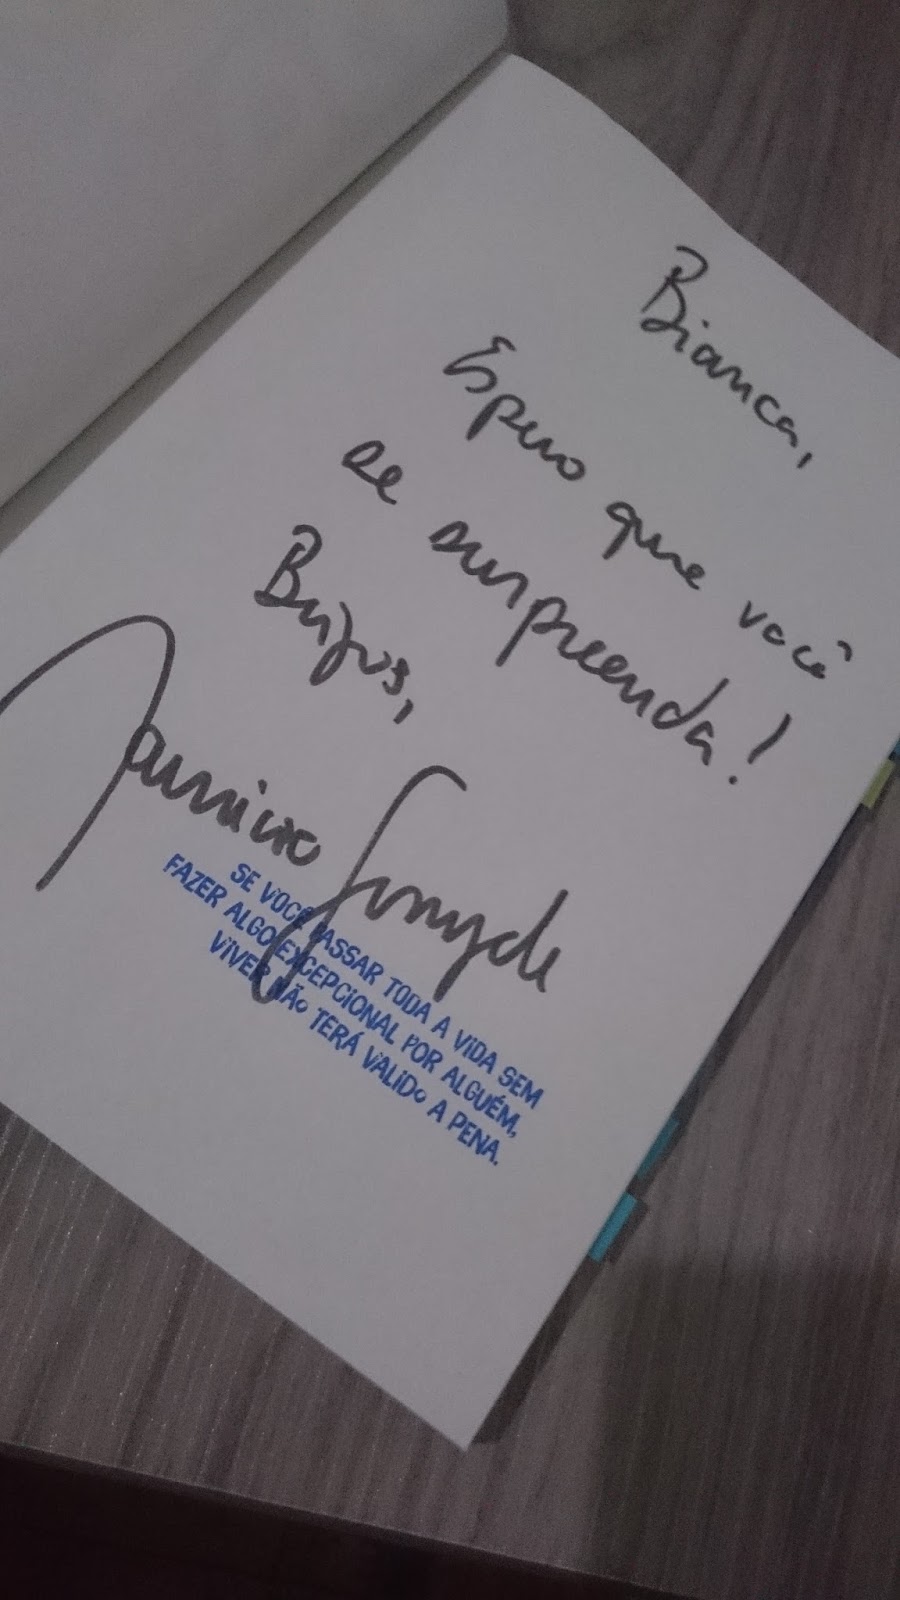 Bianca,
Espero que você
se surpreenda!
Beijos,
Maurício Gomyde
SE VOCÊ PASSAR TODA A VIDA SEM
FAZER ALGO EXCEPCIONAL POR ALGUÉM,
VIVER NÃO TERÁ VALIDO A PENA.